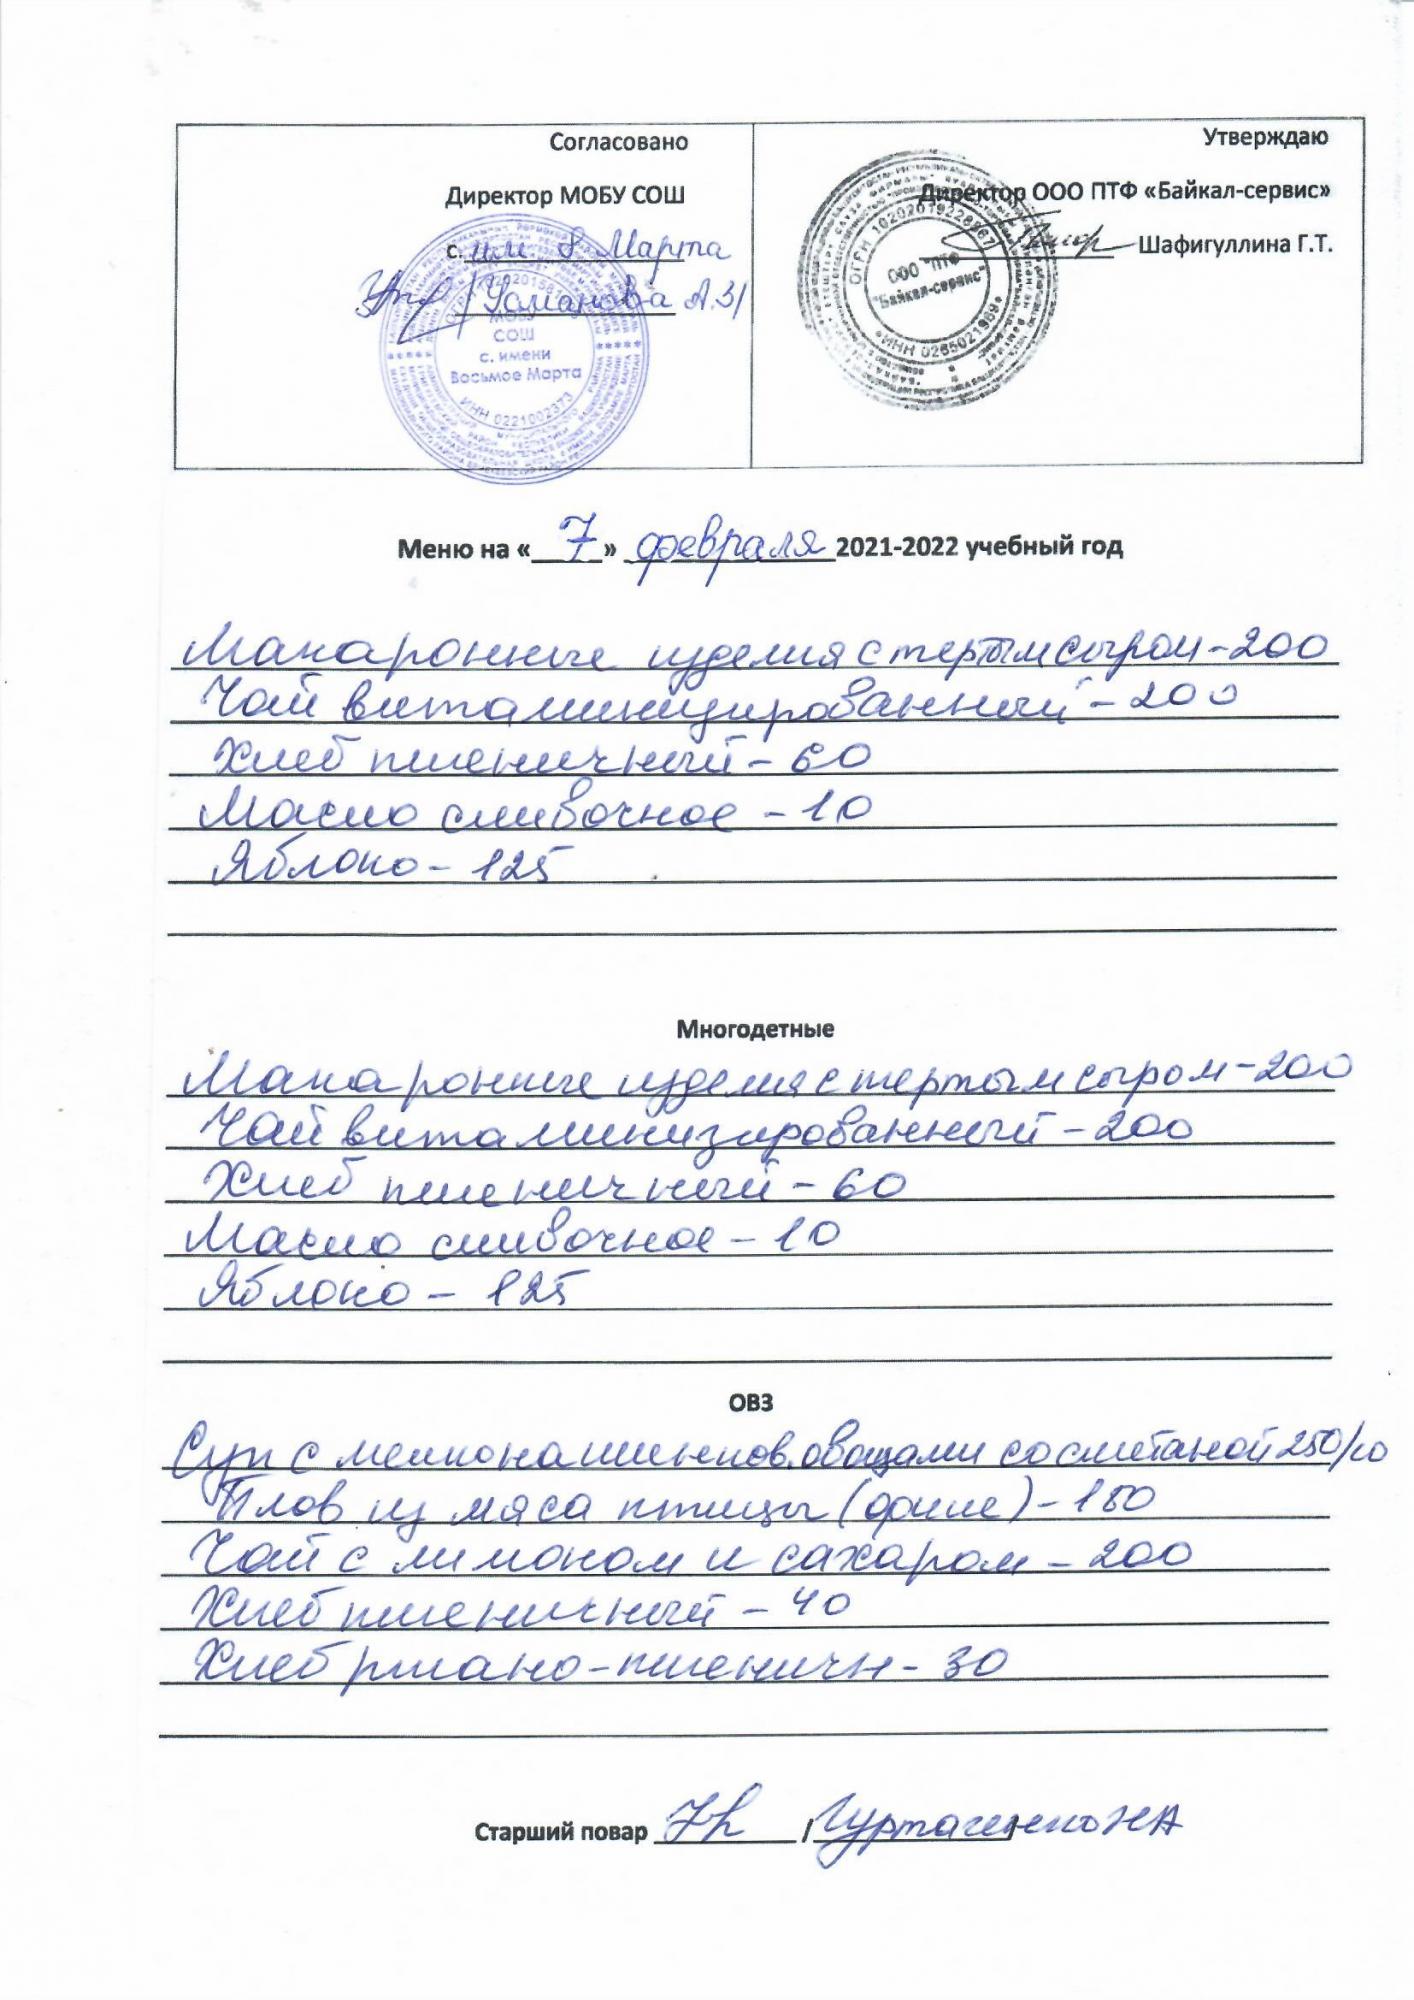 Согласовано
Директор МОБУ СОШ
с. им. 8 Марта
/Усманова А.З/
ОГРН
МОБУ
СОШ
с. имени
Восьмое Марта
ИНН 0221002373
Утверждаю
Директор ООО ПТФ «Байкал-сервис»
Шафигуллина Г.Т.
ОГРН 1020201922896
ООО "ПТФ
"Байкал-сервис"
ИНН 0265021989
Меню на « 7 » февраля 2021-2022 учебный год
Макаронные изделия с тертым сыром - 200
Чай витаминизированный - 200
Хлеб пшеничный - 60
Масло сливочное - 10
Яблоко - 125
Многодетные
Макаронные изделия с тертым сыром - 200
Чай витаминизированный - 200
Хлеб пшеничный - 60
Масло сливочное - 10
Яблоко - 125
ОВЗ
Суп с мелконашинков. овощами со сметаной 250/10
Плов из мяса птицы (филе) - 180
Чай с лимоном и сахаром - 200
Хлеб пшеничный - 40
Хлеб ржано-пшеничн - 30
Старший повар / НА